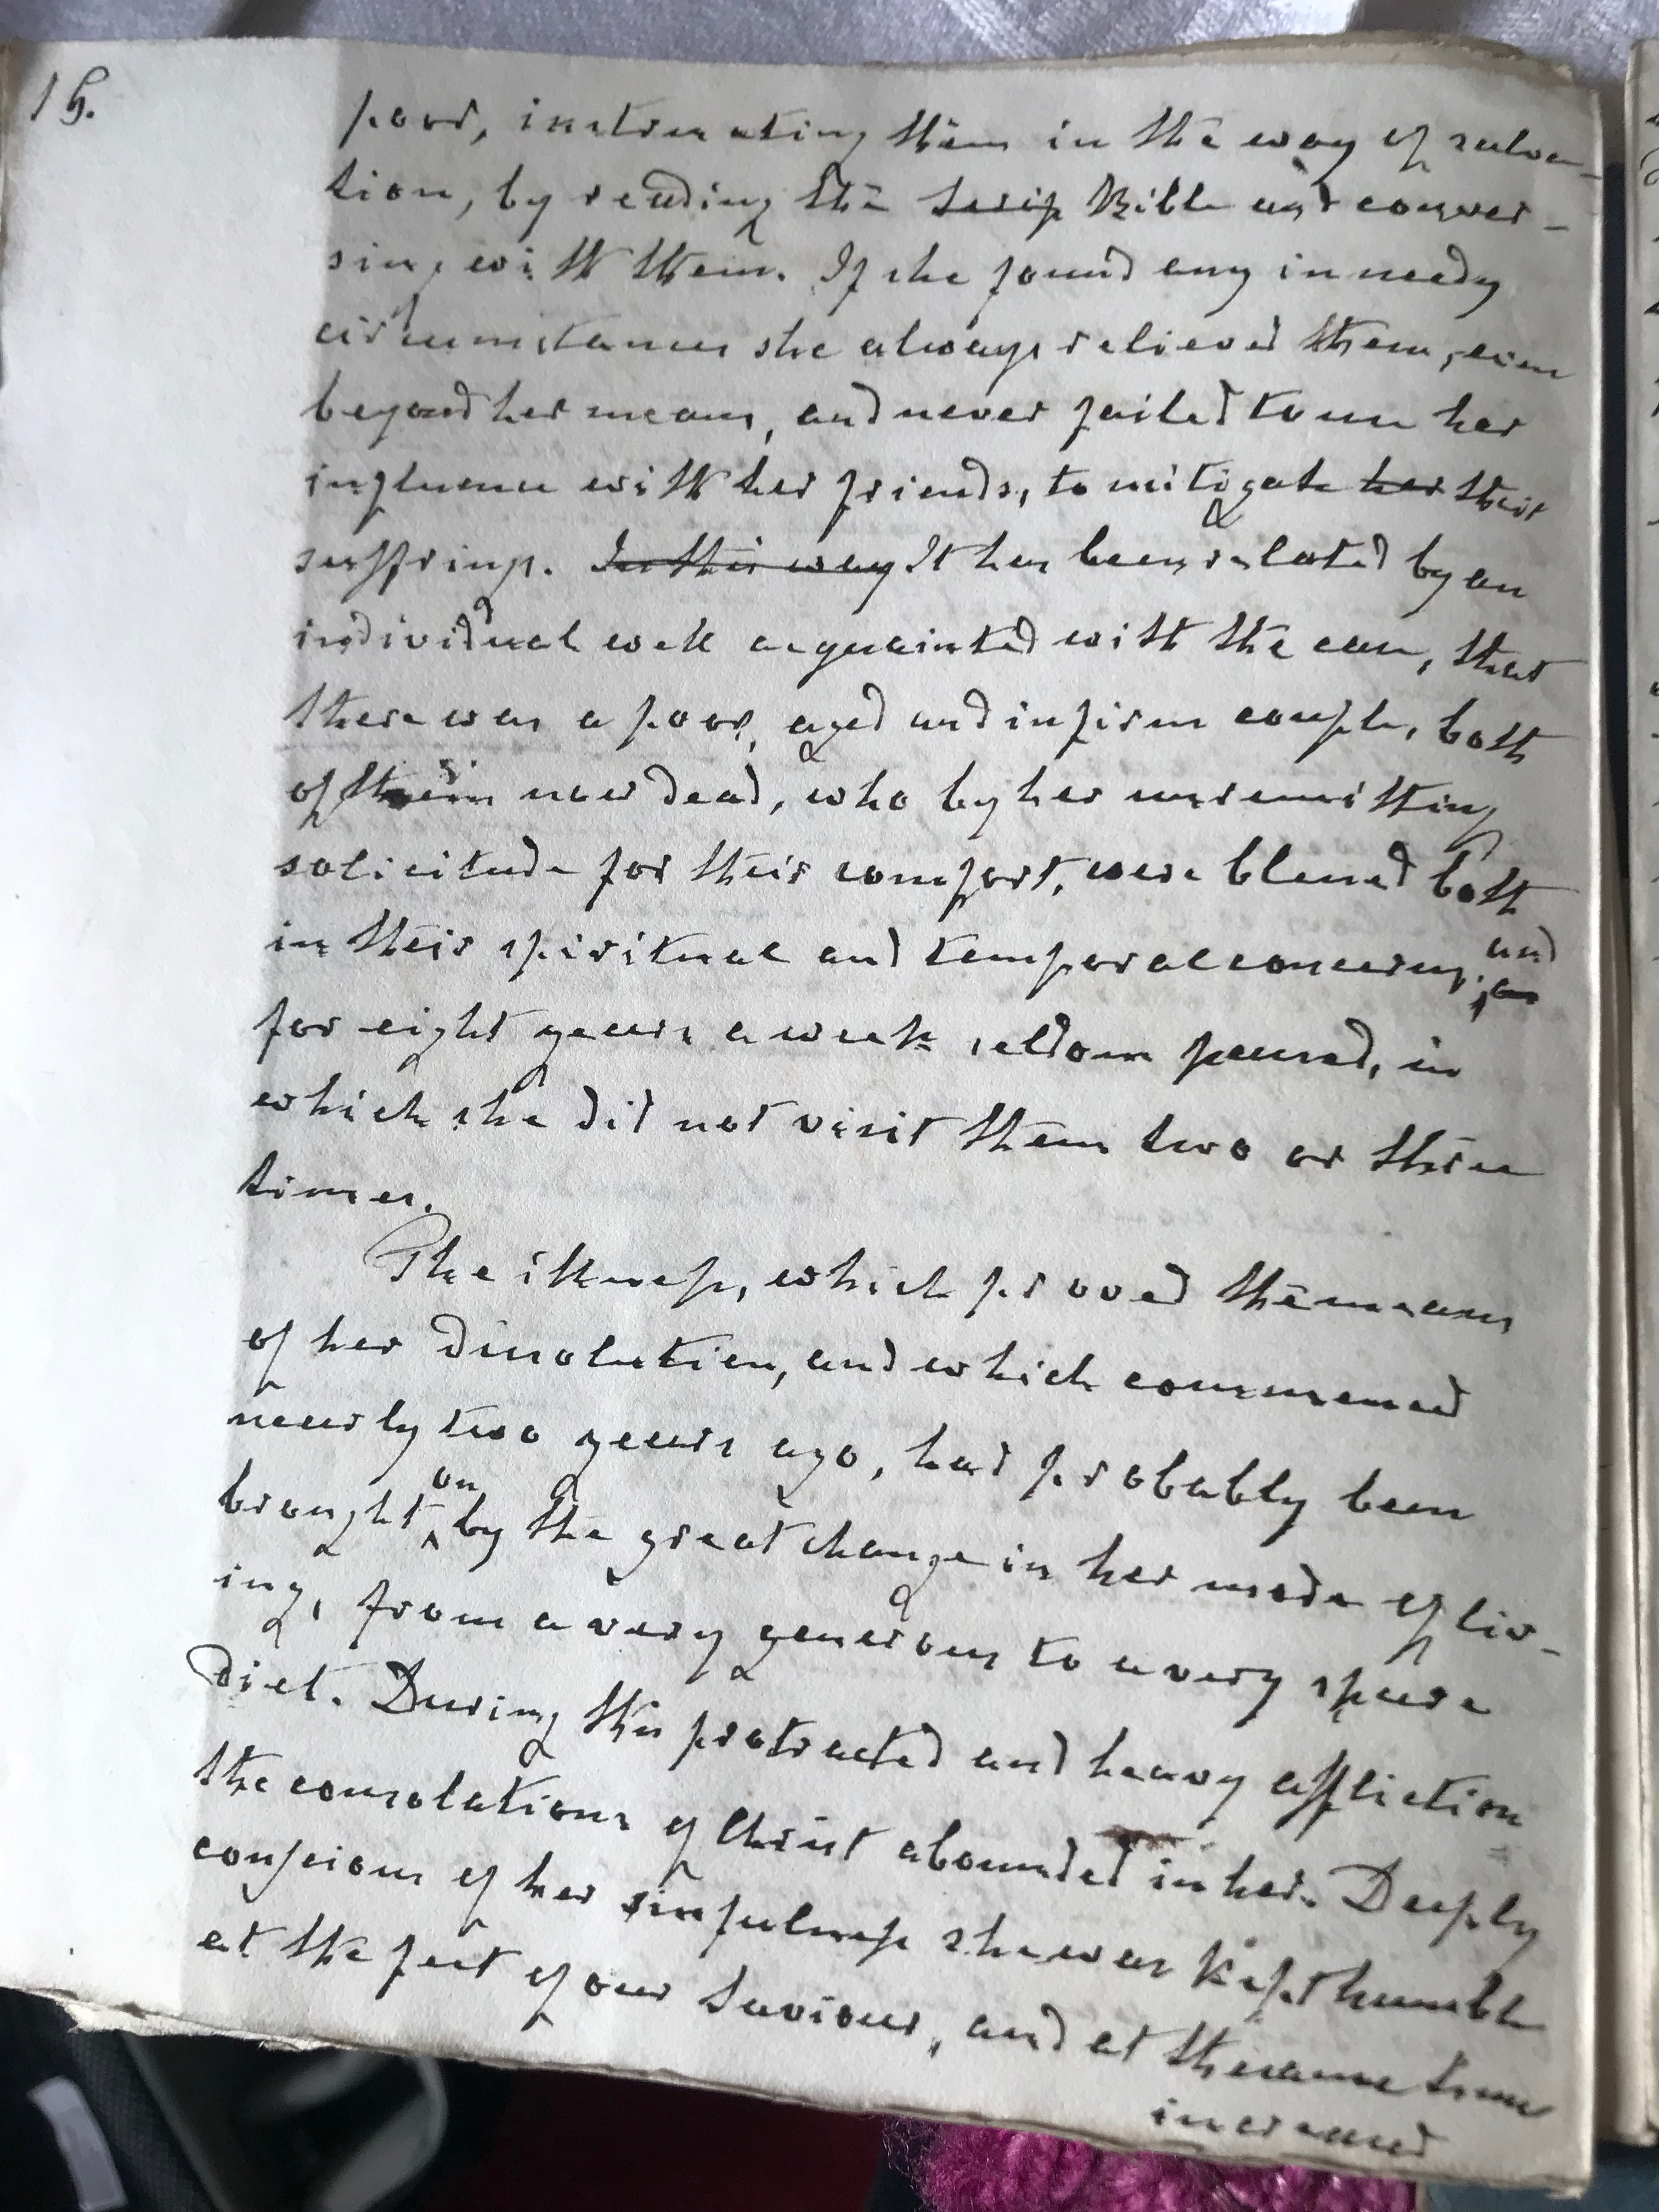 16.
poor, instructing them in the way of salva-
tion, by reading the Scrip Bible and conver-
sing with them. If she found any in needy
circumstances she always relieved them, even
beyond her means, and never failed to use her
influence with her friends, to mitigate her their
suffrings. In this way It has been related by an
individual well acquainted with the case, that
there was a poor, aged and infirm couple, both
of them now dead, who by her unremitting
solicitude for their comfort, were blessed both
in their spiritual and temporal concerns; an and
for eight years a week seldom passed, in
which she did not visit them two or three
times.
The illness, which proved the means
of her dissolution, and which commenced
nearly two years ago, had probably been
brought on by the great change in her mode of liv-
ing, from a very generous to a very spare
diet. During this protracted and heavy affliction
the consolations of Christ abounded in her. Deeply
conscious of her sinfulness she was kept humble
at the feet of our Saviour, and at the same time
increased